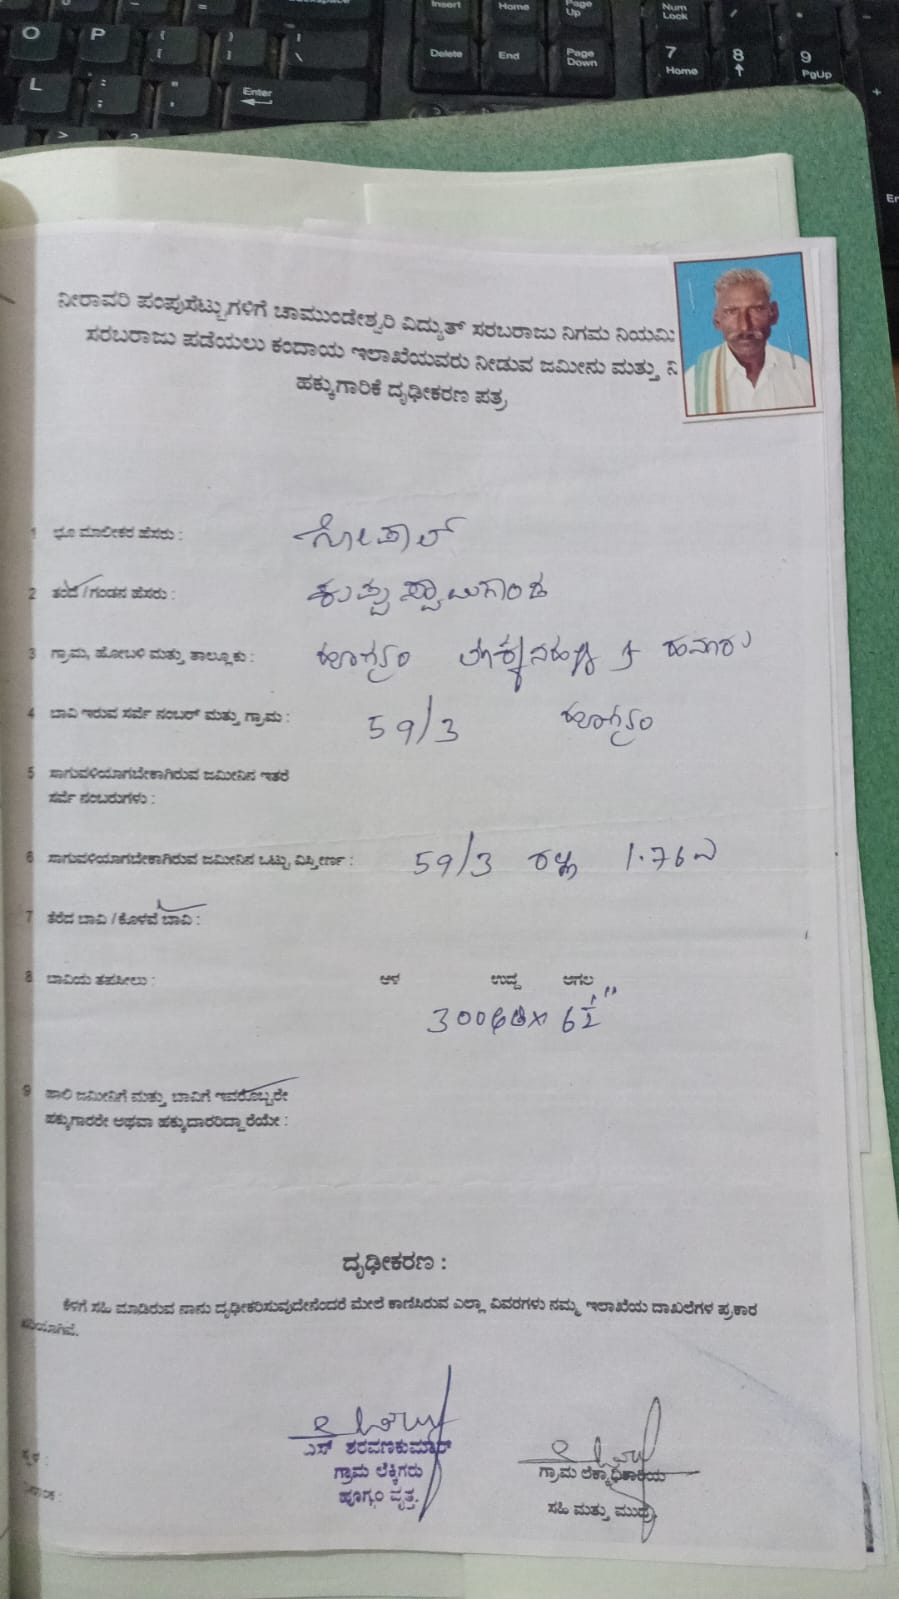 Insert Home Page Up Num Lock / *
O P { [ } ] | \ Delete End Page Down 7 Home 8 9 PgUp
L : ; " ' Enter +
> ?
ನೀರಾವರಿ ಪಂಪುಸೆಟ್ಟುಗಳಿಗೆ ಚಾಮುಂಡೇಶ್ವರಿ ವಿದ್ಯುತ್ ಸರಬರಾಜು ನಿಗಮ ನಿಯಮಿ
ಸರಬರಾಜು ಪಡೆಯಲು ಕಂದಾಯ ಇಲಾಖೆಯವರು ನೀಡುವ ಜಮೀನು ಮತ್ತು ನಿ
ಹಕ್ಕುಗಾರಿಕೆ ದೃಢೀಕರಣ ಪತ್ರ
1 ಭೂ ಮಾಲೀಕರ ಹೆಸರು : ಗೋಪಾಲ್
2 ತಂದೆ / ಗಂಡನ ಹೆಸರು : ಕುಪ್ಪುಸ್ವಾಮಿಗೌಂಡ
3 ಗ್ರಾಮ, ಹೋಬಳಿ ಮತ್ತು ತಾಲ್ಲೂಕು : ಹೂಗ್ಯಂ
4 ಬಾವಿ ಇರುವ ಸರ್ವೆ ನಂಬರ್ ಮತ್ತು ಗ್ರಾಮ : 59/3 ಹೂಗ್ಯಂ
5 ಸಾಗುವಳಿಯಾಗಬೇಕಾಗಿರುವ ಜಮೀನಿನ ಇತರೆ
ಸರ್ವೆ ನಂಬರುಗಳು :
6 ಸಾಗುವಳಿಯಾಗಬೇಕಾಗಿರುವ ಜಮೀನಿನ ಒಟ್ಟು ವಿಸ್ತೀರ್ಣ : 59/3 ರಲ್ಲಿ 1.76 ಎ
7 ತೆರೆದ ಬಾವಿ / ಕೊಳವೆ ಬಾವಿ :
8 ಬಾವಿಯ ತಪಸೀಲು : ಆಳ ಉದ್ದ ಅಗಲ
300 ಅಡಿ X 6½"
9 ಹಾಲಿ ಜಮೀನಿಗೆ ಮತ್ತು ಬಾವಿಗೆ ಇವರೊಬ್ಬರೇ
ಹಕ್ಕುಗಾರರೇ ಅಥವಾ ಹಕ್ಕುದಾರರಿದ್ದಾರೆಯೇ :
ದೃಢೀಕರಣ :
ಕೆಳಗೆ ಸಹಿ ಮಾಡಿರುವ ನಾನು ದೃಢೀಕರಿಸುವುದೇನೆಂದರೆ ಮೇಲೆ ಕಾಣಿಸಿರುವ ಎಲ್ಲಾ ವಿವರಗಳು ನಮ್ಮ ಇಲಾಖೆಯ ದಾಖಲೆಗಳ ಪ್ರಕಾರ
ಸರಿಯಾಗಿವೆ.
ಸ್ಥಳ :
ಎಸ್ ಶರವಣಕುಮಾರ್
ಗ್ರಾಮ ಲೆಕ್ಕಿಗರು
ಹೂಗ್ಯಂ ವೃತ್ತ.
ಗ್ರಾಮ ಲೆಕ್ಕಾಧಿಕಾರಿಯ
ಸಹಿ ಮತ್ತು ಮುದ್ರೆ